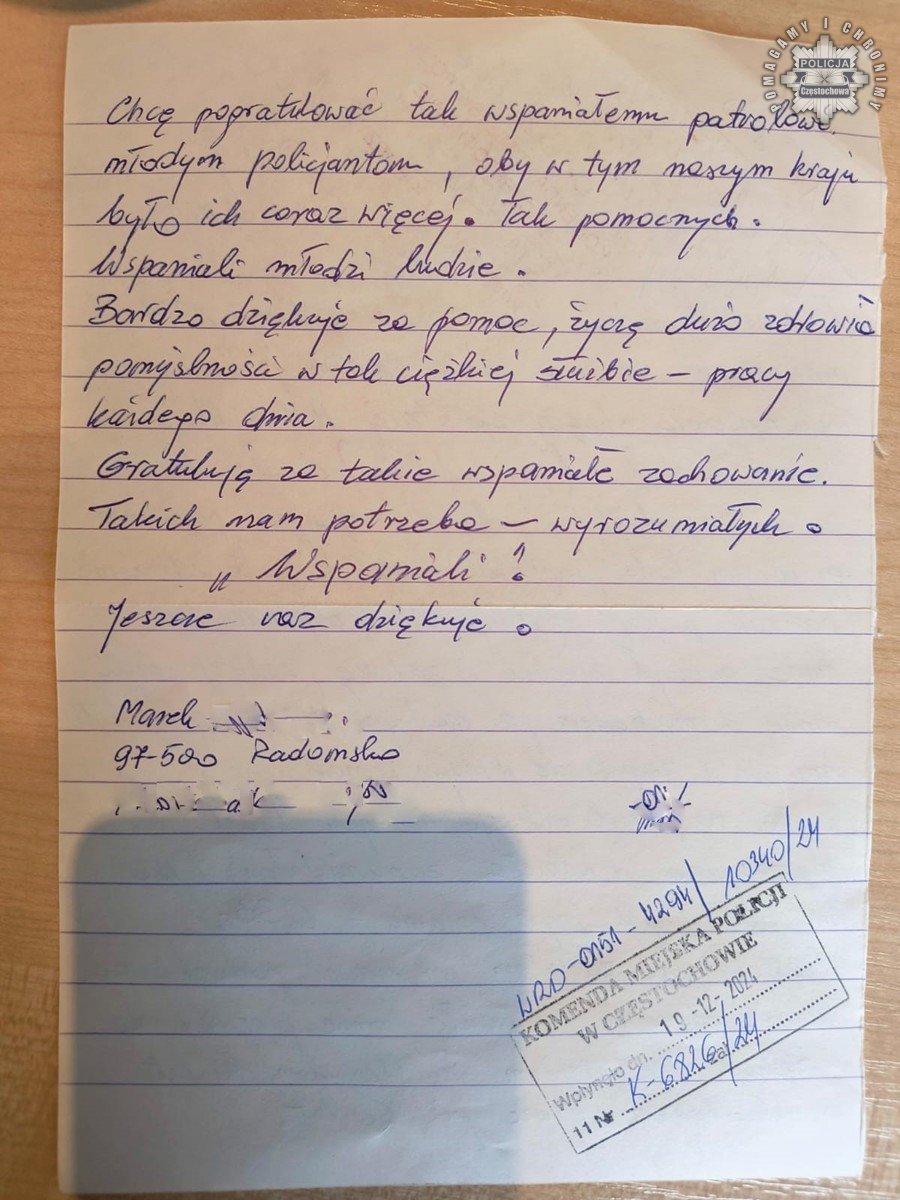 POMAGAMY I CHRONIMY
POLICJA
Częstochowa
Chcę pogratulować tak wspaniałemu patrolowi
młodym policjantom, oby w tym naszym kraju
było ich coraz więcej. Tak pomocnych.
Wspaniali młodzi ludzie.
Bardzo dziękuje za pomoc, życzę dużo zdrowia
pomyślności w tak ciężkiej służbie - pracy
każdego dnia.
Gratuluję za takie wspaniałe zachowanie.
Takich nam potrzeba - wyrozumiałych.
"Wspaniali"!
Jeszcze raz dziękuje.
Marek
97-500 Radomsko
WRD-0151-4294/10340/24
KOMENDA MIEJSKA POLICJI
W CZĘSTOCHOWIE
Wpłynęło dn. 19-12-2024
11 Nr K-6826/24 zał.